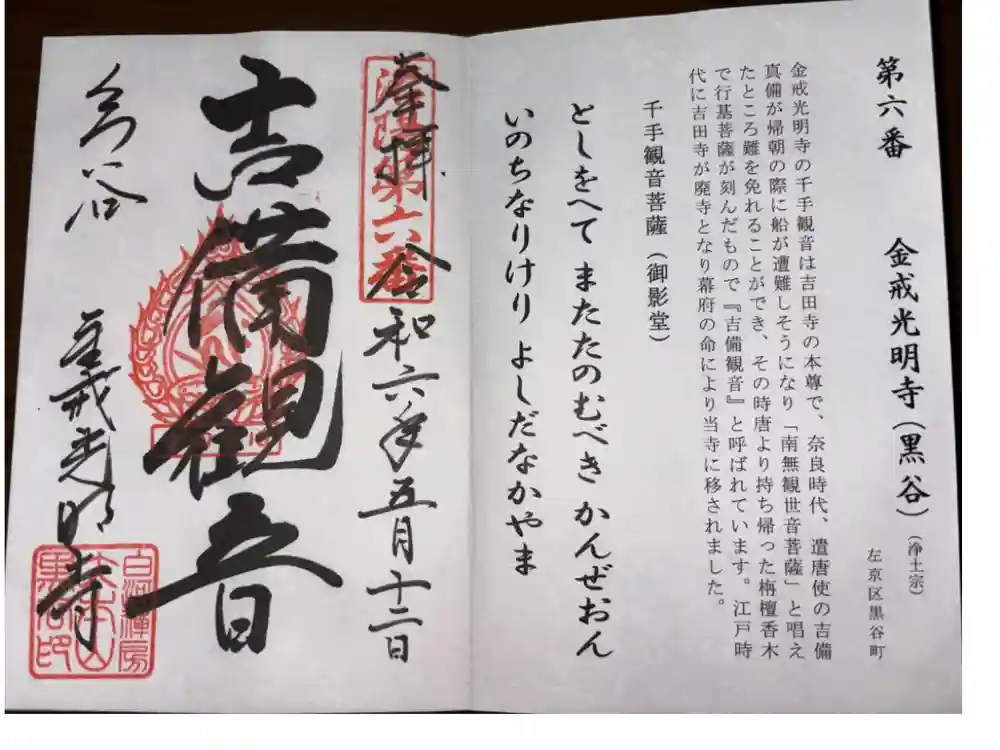 第六番 金戒光明寺(黒谷)
(浄土宗)
左京区黒谷町
金戒光明寺の千手観音は吉田寺の本尊で、奈良時代、遣唐使の吉備
真備が帰朝の際に船が遭難しそうになり「南無観世音菩薩」と唱え
たところ難を免れることができ、その時唐より持ち帰った栴檀香木
で行基菩薩が刻んだもので『吉備観音』と呼ばれています。江戸時
代に吉田寺が廃寺となり幕府の命により当寺に移されました。
千手観音菩薩(御影堂)
としをへて またたのむべき かんぜおん
いのちなりけり よしだなかやま
奉拝 令和六年五月十二日
洛陽第六番
吉備観音
金戒光明寺